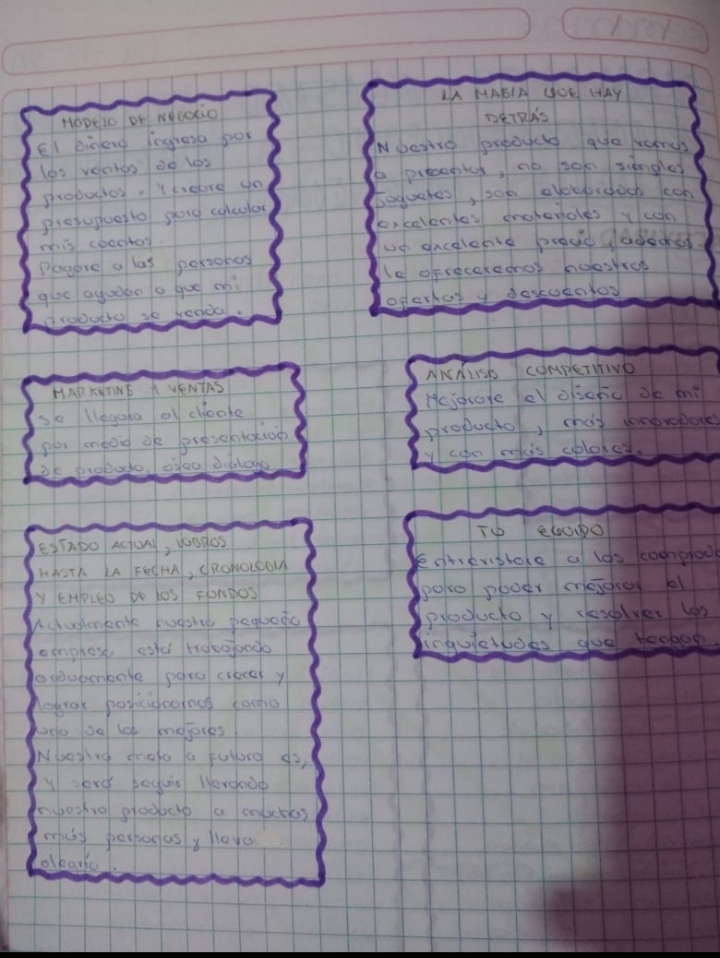 MODELO DE NEGOCIO
El dinero ingresa por
las ventas de los
productos. Y creare un
presupuesto para calcular
mis cuentas.
Pagare a las personas
que ayudan a que mi
producto se venda.
LA MAGIA QUE HAY
DETRÁS
Nuestro producto que vamos
a presentar, no son simples
juguetes, son elaborados con
excelentes materiales y con
un excelente precio, además
le ofreceremos nuestros
ofertas y descuentos
MARKETING Y VENTAS
se llegara al cliente
por medio de presentación
de producto, diálogo
ANÁLISIS COMPETITIVO
Mejorare el diseño de mi
producto, más
y con más colores.
ESTADO ACTUAL, LOGROS
HASTA LA FECHA, CRONOLOGIA
Y EMPLEO DE LOS FONDOS
Actualmente nuestra pequeña
empresa está trabajando
arduamente para crecer y
lograr posicionarnos como
uno de los mejores.
Nuestra meta a futuro es,
Y será seguir llevando
nuestro producto a muchas
más personas, y lleva
alegría.
TU EQUIPO
Entrevistare a los comprad
para poder mejorar el
producto y resolver las
inquietudes que tengan